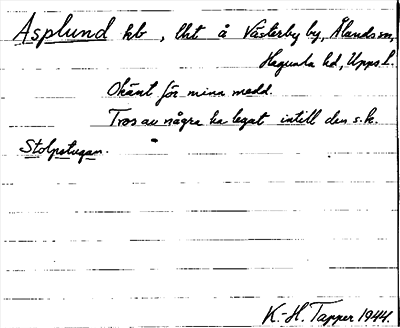 Asplund kb, Uht å Västerby by, Ålands sn,
Hagunda hd, Upps l.
Okänt för mina medd.
Tros av några ha legat intill den s.k.
Stolpstugan.
K.-H. Tapper 1944.